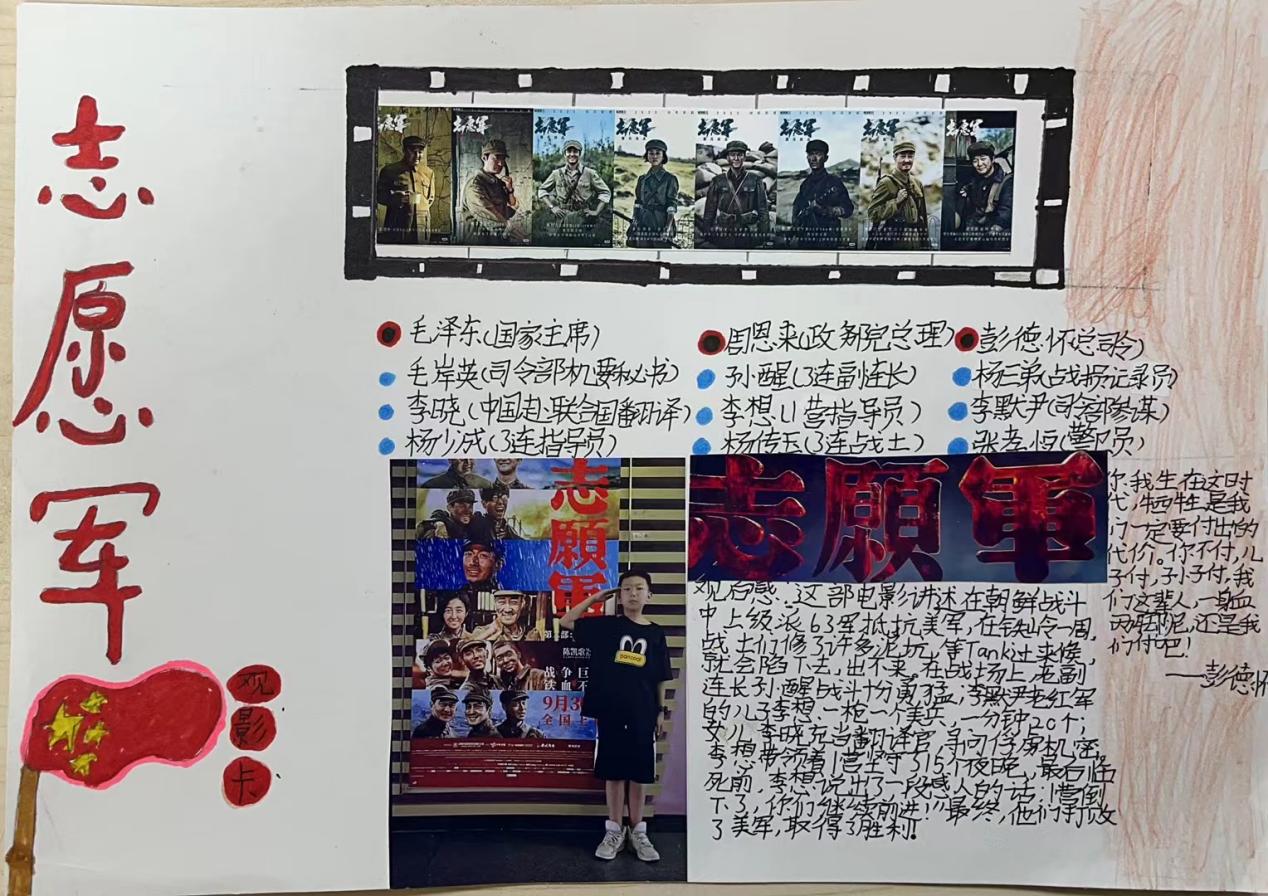 志愿军
观影卡
志愿军
志愿军
志愿军
志愿军
志愿军
志愿军
志愿军
志愿军
毛泽东(国家主席)
周恩来(政务院总理)
彭德怀(总司令)
毛岸英(司令部机要秘书)
孙醒(3连副连长)
杨三弟(战损记录员)
李晓(中国赴联合国翻译)
李想(1营指导员)
李默尹(司令部参谋)
杨少成(3连指导员)
杨传玉(3连战士)
张孝恒(警卫员)
志願軍
陈凯歌
战争巨
铁血不
9月30
全国上
志願軍
观后感:这部电影讲述在朝鲜战斗
中上级派63军抵抗美军,在铁岭一周,
战士们修了许多泥坑,等Tank过来候,
就会陷下去,出不来。在战场上,老副
连长孙醒战斗十分勇猛;李默尹老红军
的儿子李想.一枪一个美兵,一分钟20个;
女儿李晓充当翻译官,争问俘虏机密;
李想带领着1营坚守了15个夜晚,最后临
死前,李想说出了一段感人的话:1营倒
下了,你们继续前进!”最终,他们打败
了美军,取得了胜利!
你我生在这时
代,牺牲是我
们一定要付出的
代价。你不付,儿
子付,孙子付,我
们这辈人,一身血
两脚泥,还是我
们付吧!
——彭德怀